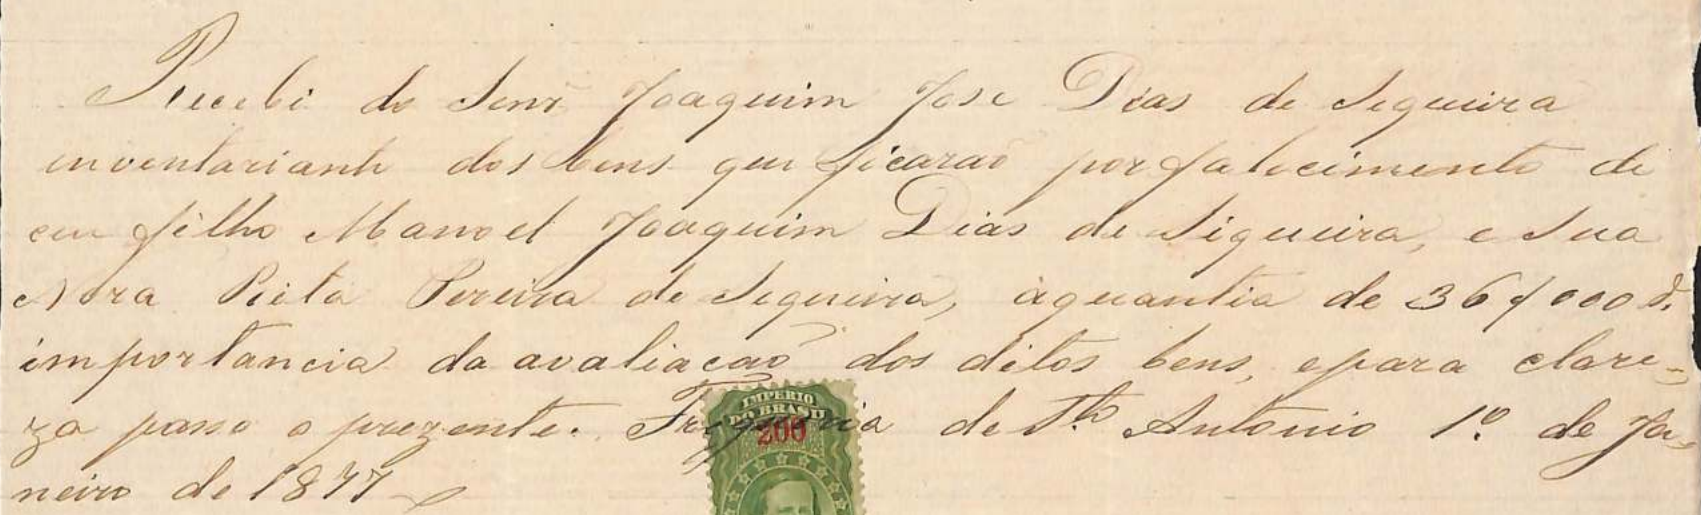 Recebi do Senr Joaquim Jose Dias de Siqueira
inventariante dos bens que ficaraõ por falecimento de
seu filho Manoel Joaquim Dias de Siqueira, e Sua
Nora Rita Pereira de Siqueira, a quantia de 36$000 r.
importancia da avaliaçaõ dos ditos bens, e para clare=
za passo o prezente. Freguezia de Sto Antonio 1º de Ja=
neiro de 1877
IMPERIO
DO BRASIL
200